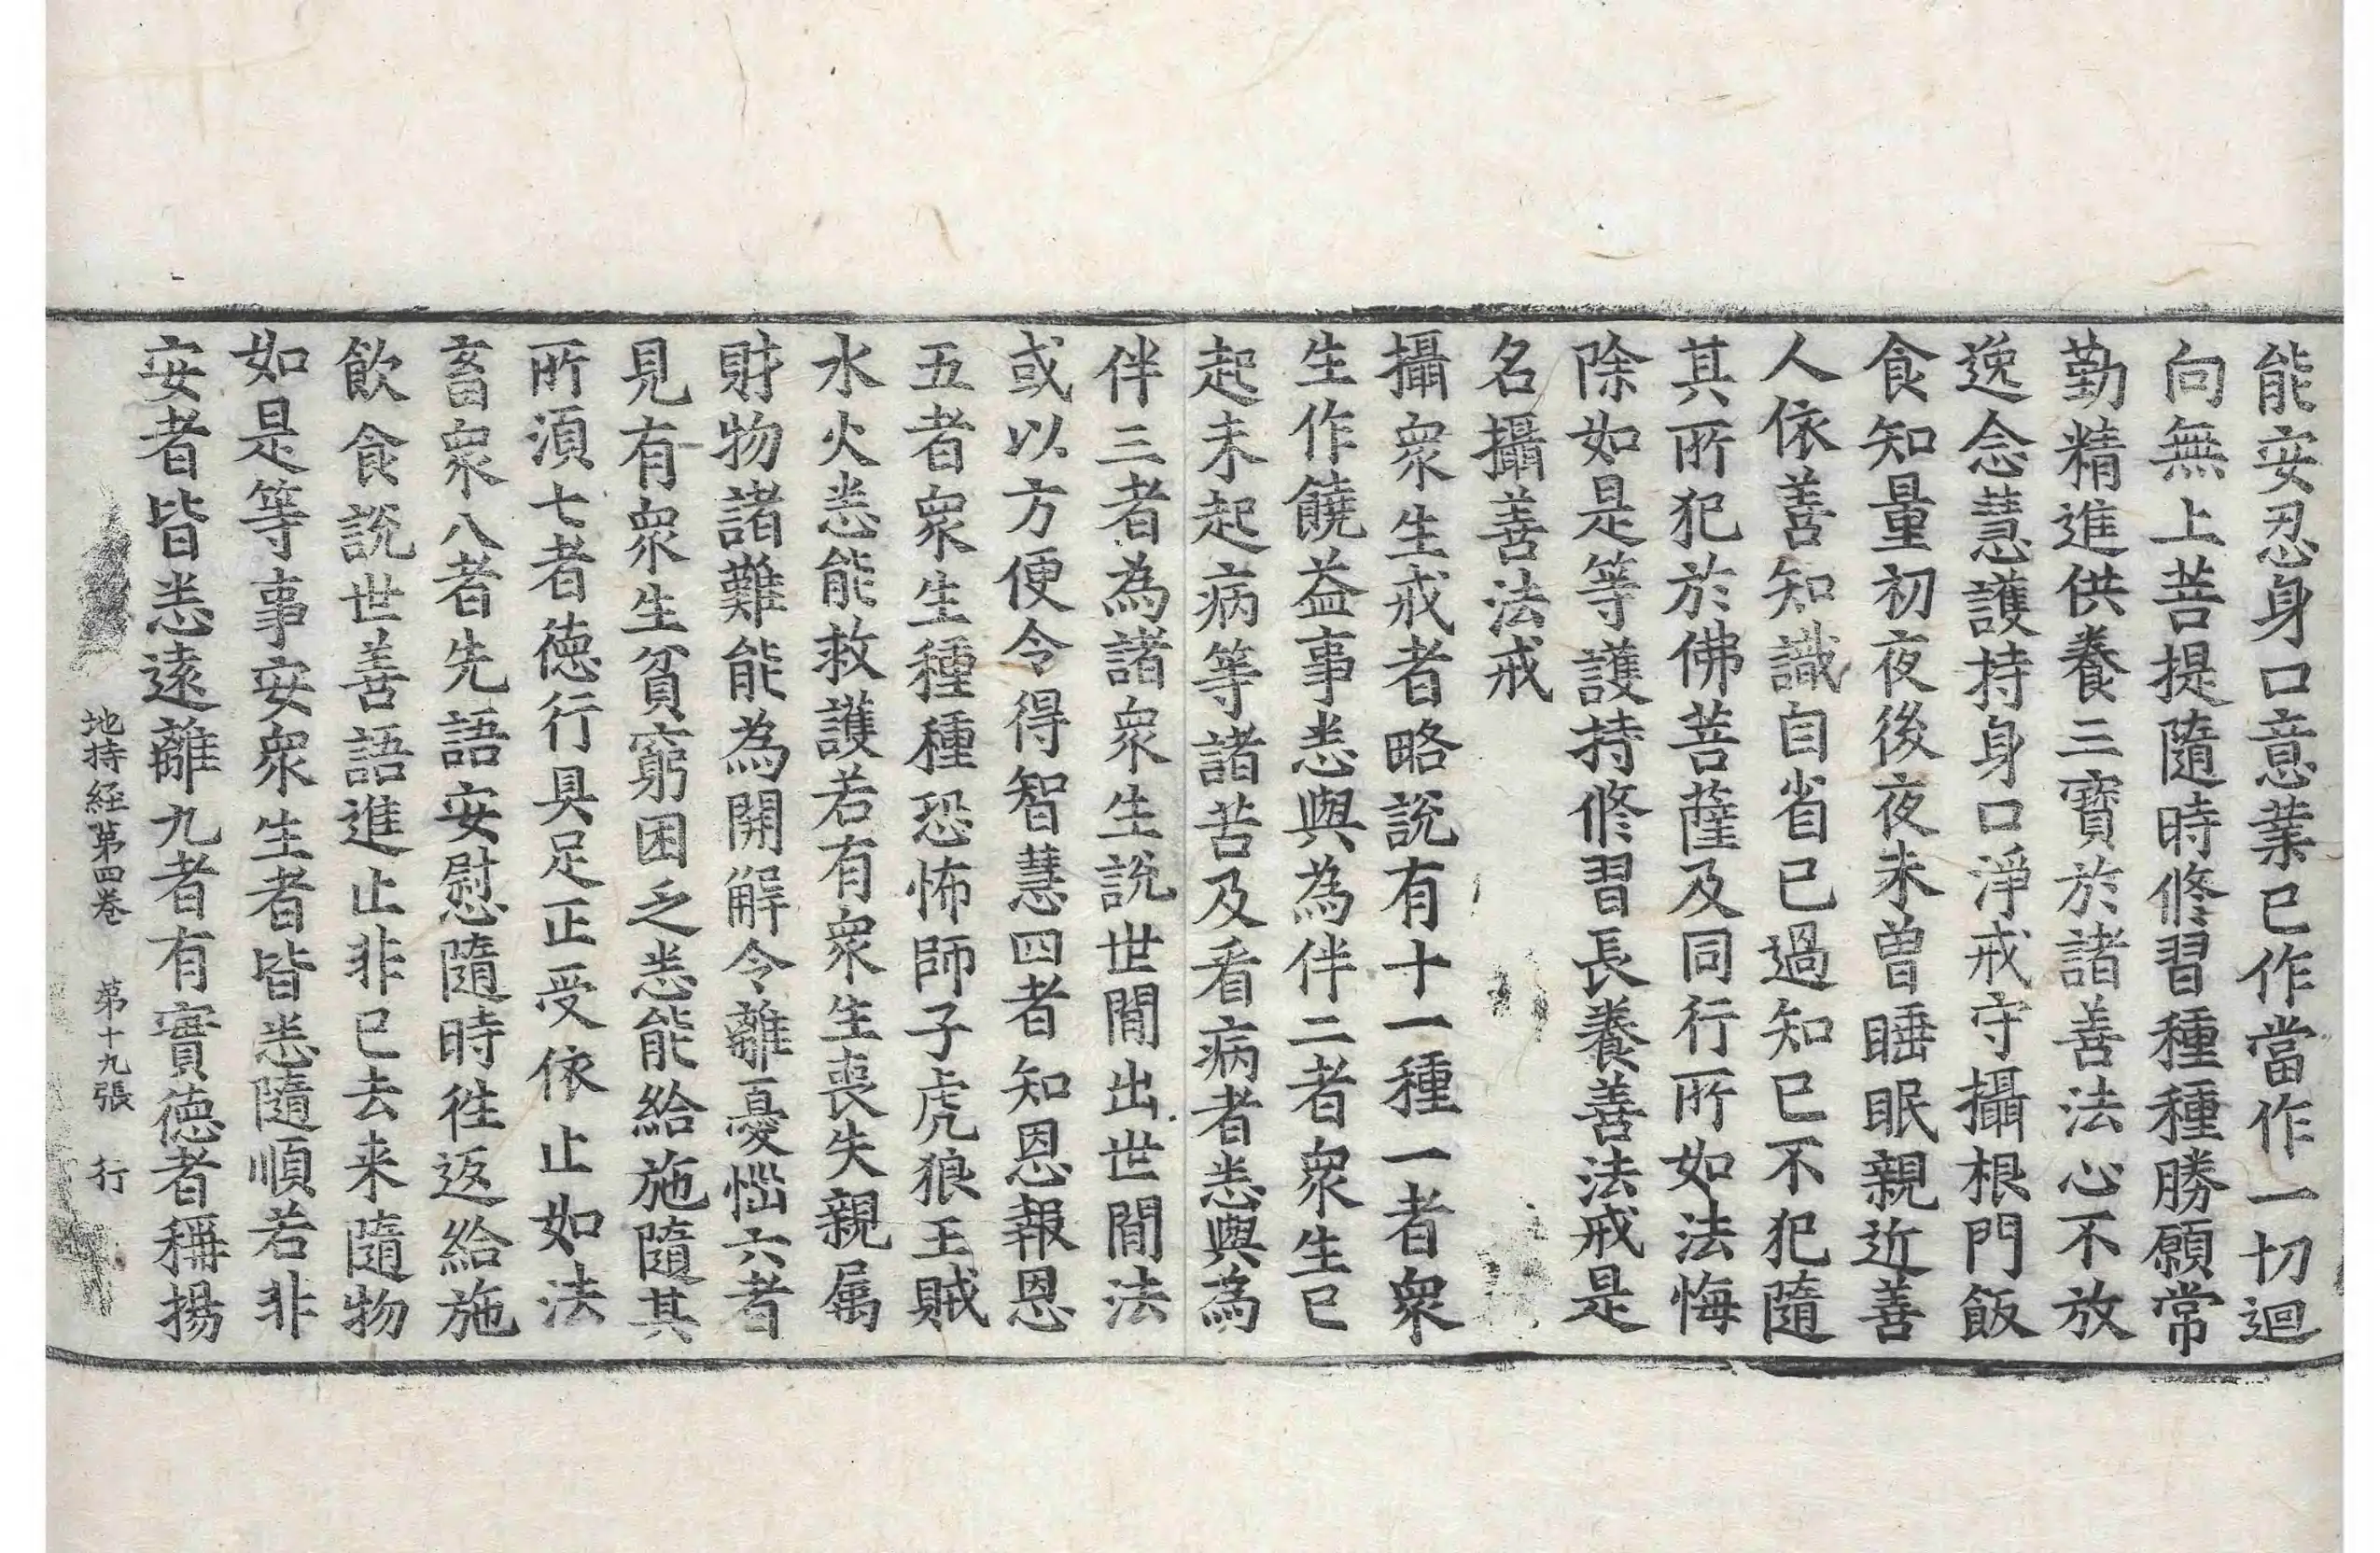 能安忍身口意業已作當作一切迴
向無上菩提隨時修習種種勝願常
勤精進供養三寶於諸善法心不放
逸念慧護持身口淨戒守攝根門飯
食知量初夜後夜未曾睡眠親近善
人依善知識自省已過知已不犯隨
其所犯於佛菩薩及同行所如法悔
除如是等護持修習長養善法戒是
名攝善法戒
攝衆生戒者略說有十一種一者衆
生作饒益事悉與為伴二者衆生已
起未起病等諸苦及看病者悉與為
伴三者為諸衆生說世間出世間法
或以方便令得智慧四者知恩報恩
五者衆生種種恐怖師子虎狼王賊
水火悉能救護若有衆生喪失親属
財物諸難能為開解令離憂惱六者
見有衆生貧窮困乏悉能給施隨其
所須七者徳行具足正受依止如法
畜衆八者先語安慰隨時徃返給施
飲食說世善語進止非已去来隨物
如是等事安衆生者皆悉隨順若非
安者皆悉遠離九者有實徳者稱揚
地持経第四卷 第十九張 行